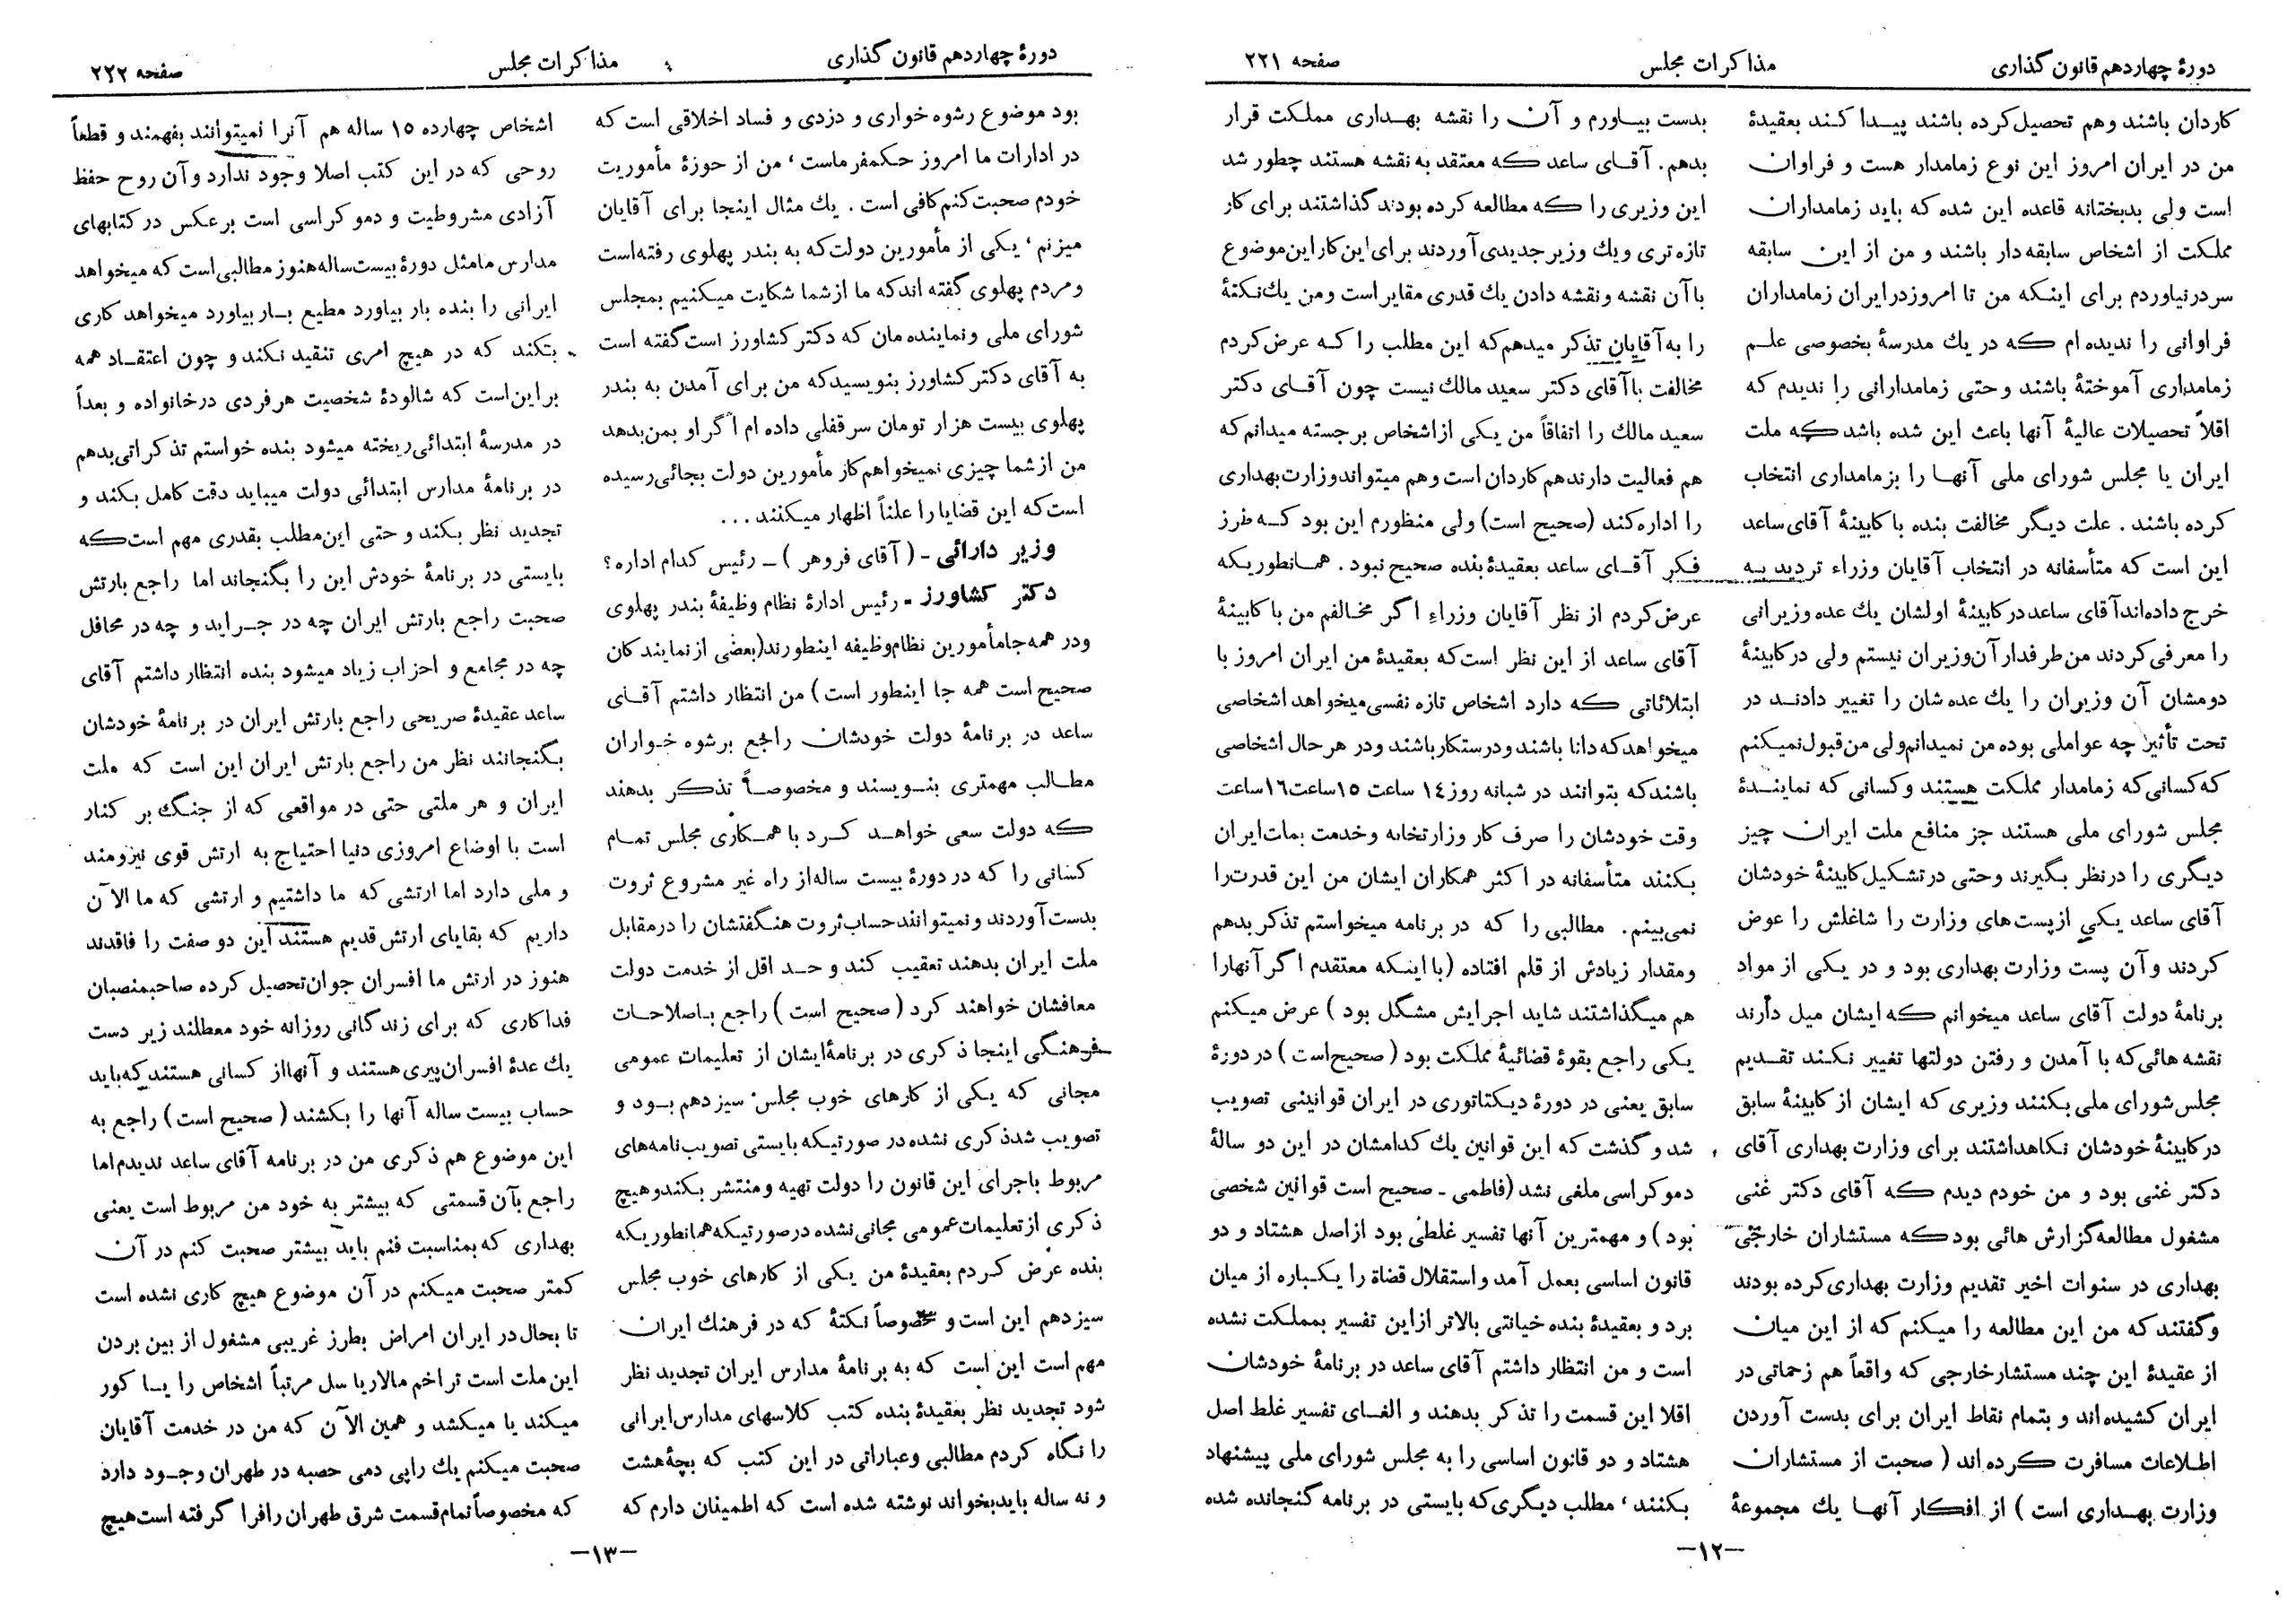 دورهٔ چهاردهم قانون گذاری
مذاکرات مجلس
صفحه ۲۲۱
کاردان باشند وهم تحصیل کرده باشند پیدا کنند بعقیدهٔ
من در ایران امروز این نوع زمامدار هست و فراوان
است ولی بدبختانه قاعده این شده که باید زمامداران
مملکت از اشخاص سابقه دار باشند و من از این سابقه
سردرنیاوردم برای اینکه من تا امروزدرایران زمامداران
فراوانی را ندیده ام که در یك مدرسهٔ بخصوصی علم
زمامداری آموختهٔ باشند وحتی زمامدارانی را ندیدم که
اقلاً تحصیلات عالیهٔ آنها باعث این شده باشد که ملت
ایران یا مجلس شورای ملی آنها را بزمامداری انتخاب
کرده باشند . علت دیگر مخالفت بنده با کابینهٔ آقای ساعد
این است که متأسفانه در انتخاب آقایان وزراء تردید به
خرج داده‌اند آقای ساعد درکابینهٔ اولشان یك عده وزیرانی
را معرفی کردند من طرفدار آن وزیران نیستم ولی درکابینهٔ
دومشان آن وزیران را یك عده شان را تغییر دادند در
تحت تأثیر چه عواملی بوده من نمیدانم ولی من قبول نمیکنم
که کسانی که زمامدار مملکت هستند وکسانی که نمایندهٔ
مجلس شورای ملی هستند جز منافع ملت ایران چیز
دیگری را درنظر بگیرند وحتی در تشکیل کابینهٔ خودشان
آقای ساعد یکی از پست های وزارت را شاغلش را عوض
کردند وآن پست وزارت بهداری بود و در یکی از مواد
برنامهٔ دولت آقای ساعد میخوانم که ایشان میل دارند
نقشه هائی که با آمدن و رفتن دولتها تغییر نکند تقدیم
مجلس شورای ملی بکنند وزیری که ایشان از کابینهٔ سابق
درکابینهٔ خودشان نگاهداشتند برای وزارت بهداری آقای
دکتر غنی بود و من خودم دیدم که آقای دکتر غنی
مشغول مطالعه گزارش هائی بود که مستشاران خارجی
بهداری در سنوات اخیر تقدیم وزارت بهداری کرده بودند
وگفتند که من این مطالعه را میکنم که از این میان
از عقیدهٔ این چند مستشار خارجی که واقعاً هم زحماتی در
ایران کشیده‌اند و بتمام نقاط ایران برای بدست آوردن
اطلاعات مسافرت کرده اند ( صحبت از مستشاران
وزارت بهداری است ) از افکار آنها یك مجموعهٔ
بدست بیاورم و آن را نقشه بهداری مملکت قرار
بدهم . آقای ساعد که معتقد به نقشه هستند چطور شد
این وزیری را که مطالعه کرده بودند گذاشتند برای کار
تازه تری ویك وزیر جدیدی آوردند برای این کار این موضوع
با آن نقشه ونقشه دادن یك قدری مغایر است ومن یك نکتهٔ
را به آقایان تذکر میدهم که این مطلب را که عرض کردم
مخالفت با آقای دکتر سعید مالك نیست چون آقای دکتر
سعید مالك را اتفاقاً من یکی از اشخاص برجسته میدانم که
هم فعالیت دارند هم کاردان است وهم میتواند وزارت بهداری
را اداره کند (صحیح است) ولی منظورم این بود که طرز
فکر آقای ساعد بعقیدهٔ بنده صحیح نبود . همانطوریکه
عرض کردم از نظر آقایان وزراء اگر مخالفم من با کابینهٔ
آقای ساعد از این نظر است که بعقیدهٔ من ایران امروز با
ابتلائاتی که دارد اشخاص تازه نفسی میخواهد اشخاصی
میخواهد که دانا باشند ودرستکار باشند ودر هر حال اشخاصی
باشند که بتوانند در شبانه روز ۱٤ ساعت ۱٥ ساعت ۱٦ ساعت
وقت خودشان را صرف کار وزارتخانه وخدمت بملت ایران
بکنند متأسفانه در اکثر همکاران ایشان من این قدرت را
نمی بینم . مطالبی را که در برنامه میخواستم تذکر بدهم
ومقدار زیادش از قلم افتاده (با اینکه معتقدم اگر آنها را
هم میگذاشتند شاید اجرایش مشگل بود ) عرض میکنم
یکی راجع بقوهٔ قضائیهٔ مملکت بود ( صحیح است ) در دورهٔ
سابق یعنی در دورهٔ دیکتاتوری در ایران قوانینی تصویب
شد و گذشت که این قوانین یك کدامشان در این دو سالهٔ
دموکراسی ملغی نشد (فاطمی - صحیح است قوانین شخصی
بود ) و مهمترین آنها تفسیر غلطی بود از اصل هشتاد و دو
قانون اساسی بعمل آمد واستقلال قضاة را یکباره از میان
برد و بعقیدهٔ بنده خیانتی بالاتر از این تفسیر بمملکت نشده
است و من انتظار داشتم آقای ساعد در برنامهٔ خودشان
اقلا این قسمت را تذکر بدهند و الغای تفسیر غلط اصل
هشتاد و دو قانون اساسی را به مجلس شورای ملی پیشنهاد
بکنند ، مطلب دیگری که بایستی در برنامه گنجانده شده
-۱۲-
دورهٔ چهاردهم قانون گذاری
مذاکرات مجلس
صفحه ۲۲۲
بود موضوع رشوه خواری و دزدی و فساد اخلاقی است که
در ادارات ما امروز حکمفرماست ، من از حوزهٔ مأموریت
خودم صحبت کنم کافی است . یك مثال اینجا برای آقایان
میزنم ، یکی از مأمورین دولت که به بندر پهلوی رفته است
ومردم پهلوی گفته اند که ما از شما شکایت میکنیم بمجلس
شورای ملی ونماینده مان که دکتر کشاورز است گفته است
به آقای دکتر کشاورز بنویسید که من برای آمدن به بندر
پهلوی بیست هزار تومان سرقفلی داده ام اگر او بمن بدهد
من از شما چیزی نمیخواهم کار مأمورین دولت بجائی رسیده
است که این قضایا را علناً اظهار میکنند . . .
وزیر دارائی - ( آقای فروهر ) - رئیس کدام اداره ؟
دکتر کشاورز - رئیس ادارهٔ نظام وظیفهٔ بندر پهلوی
ودر همه جا مأمورین نظام وظیفه اینطورند (بعضی از نمایندگان
صحیح است همه جا اینطور است ) من انتظار داشتم آقای
ساعد در برنامهٔ دولت خودشان راجع برشوه خواران
مطالب مهمتری بنویسند و مخصوصاً تذکر بدهند
که دولت سعی خواهد کرد با همکاری مجلس تمام
کسانی را که در دورهٔ بیست ساله از راه غیر مشروع ثروت
بدست آوردند ونمیتوانند حساب ثروت هنگفتشان را در مقابل
ملت ایران بدهند تعقیب کند و حد اقل از خدمت دولت
معافشان خواهند کرد ( صحیح است ) راجع باصلاحات
فرهنگی اینجا ذکری در برنامهٔ ایشان از تعلیمات عمومی
مجانی که یکی از کارهای خوب مجلس سیزدهم بود و
تصویب شد ذکری نشده در صورتیکه بایستی تصویب نامه‌های
مربوط باجرای این قانون را دولت تهیه ومنتشر بکند وهیچ
ذکری از تعلیمات عمومی مجانی نشده در صورتیکه همانطوریکه
بنده عرض کردم بعقیدهٔ من یکی از کارهای خوب مجلس
سیزدهم این است و مخصوصاً نکتهٔ که در فرهنك ایران
مهم است این است که به برنامهٔ مدارس ایران تجدید نظر
شود تجدید نظر بعقیدهٔ بنده کتب کلاسهای مدارس ایرانی
را نگاه کردم مطالبی وعباراتی در این کتب که بچهٔ هشت
و نه ساله باید بخواند نوشته شده است که اطمینان دارم که
اشخاص چهارده ۱٥ ساله هم آنرا نمیتوانند بفهمند و قطعاً
روحی که در این کتب اصلا وجود ندارد وآن روح حفظ
آزادی مشروطیت و دموکراسی است برعکس در کتابهای
مدارس ما مثل دورهٔ بیست ساله هنوز مطالبی است که میخواهد
ایرانی را بنده بار بیاورد مطیع بار بیاورد میخواهد کاری
بکند که در هیچ امری تنقید نکند و چون اعتقاد همه
بر این است که شالودهٔ شخصیت هر فردی در خانواده و بعداً
در مدرسهٔ ابتدائی ریخته میشود بنده خواستم تذکراتی بدهم
در برنامهٔ مدارس ابتدائی دولت میباید دقت کامل بکند و
تجدید نظر بکند و حتی این مطلب بقدری مهم است که
بایستی در برنامهٔ خودش این را بگنجاند اما راجع بارتش
صحبت راجع بارتش ایران چه در جراید و چه در محافل
چه در مجامع و احزاب زیاد میشود بنده انتظار داشتم آقای
ساعد عقیدهٔ صریحی راجع بارتش ایران در برنامهٔ خودشان
بگنجانند نظر من راجع بارتش ایران این است که ملت
ایران و هر ملتی حتی در مواقعی که از جنگ بر کنار
است با اوضاع امروزی دنیا احتیاج به ارتش قوی نیرومند
و ملی دارد اما ارتشی که ما داشتیم و ارتشی که ما الآن
داریم که بقایای ارتش قدیم هستند این دو صفت را فاقدند
هنوز در ارتش ما افسران جوان تحصیل کرده صاحبمنصبان
فداکاری که برای زندگانی روزانه خود معطلند زیر دست
یك عدهٔ افسران پیری هستند و آنها از کسانی هستند که باید
حساب بیست ساله آنها را بکشند ( صحیح است ) راجع به
این موضوع هم ذکری من در برنامه آقای ساعد ندیدم اما
راجع بآن قسمتی که بیشتر به خود من مربوط است یعنی
بهداری که بمناسبت فنم باید بیشتر صحبت کنم در آن
کمتر صحبت میکنم در آن موضوع هیچ کاری نشده است
تا بحال در ایران امراض بطرز غریبی مشغول از بین بردن
این ملت است تراخم مالاریا سل مرتباً اشخاص را یا کور
میکند یا میکشد و همین الآن که من در خدمت آقایان
صحبت میکنم یك راپی دمی حصبه در طهران وجود دارد
که مخصوصاً تمام قسمت شرق طهران را فرا گرفته است هیچ
-۱۳-